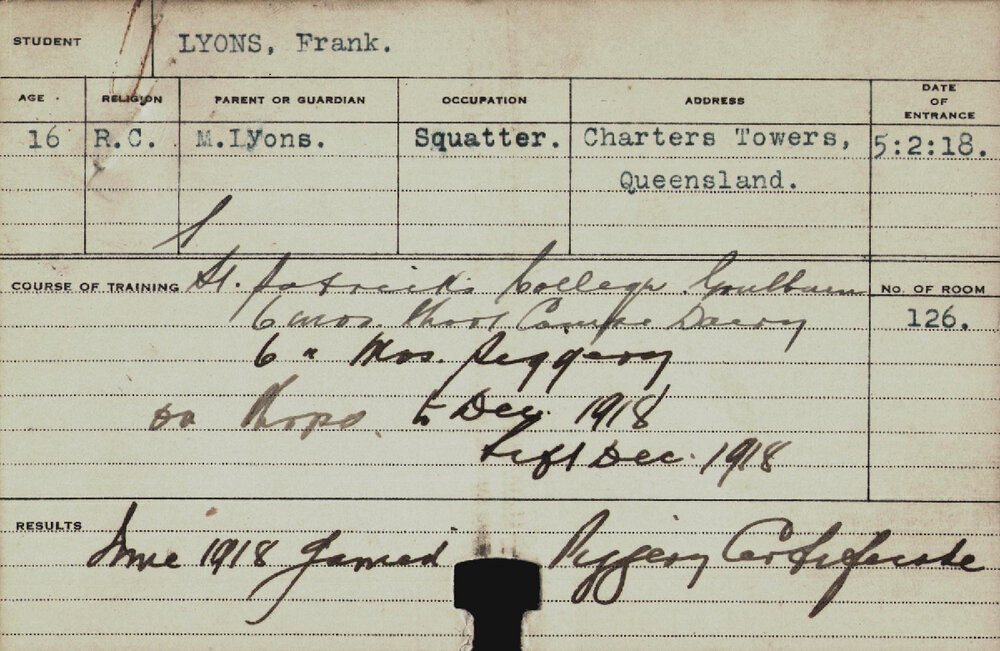 STUDENT LYONS, Frank.
AGE RELIGION PARENT OR GUARDIAN OCCUPATION ADDRESS DATE OF ENTRANCE
16 R.C. M.Lyons. Squatter. Charters Towers, 5:2:18.
Queensland.
COURSE OF TRAINING St. Patricks College Goulburn NO. OF ROOM
6 mos Short Course Dairy 126.
6 " Mos. Piggery
to Dec. 1918
Left Dec. 1918
RESULTS June 1918 Gained Piggery Certificate